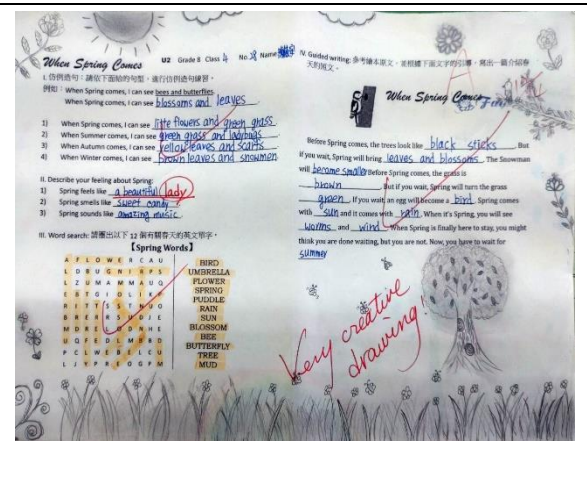 When Spring Comes U2 Grade 8 Class 4 No. Name
I. 仿例造句：請依下面給的句型，進行仿例造句練習。
例如：When Spring comes, I can see bees and butterflies.
When Spring comes, I can see blossoms and leaves.
1) When Spring comes, I can see little flowers and green grass
2) When Summer comes, I can see green grass and ladybags
3) When Autumn comes, I can see yellow leaves and scarfs
4) When Winter comes, I can see brown leaves and snowmen
II. Describe your feeling about Spring:
1) Spring feels like a beautiful lady
2) Spring smells like sweet candy
3) Spring sounds like amazing music.
III. Word search: 請圈出以下 12 個有關春天的英文單字。
【Spring Words】
A F L O W E R C A U
BIRD
UMBRELLA
FLOWER
SPRING
PUDDLE
RAIN
SUN
BLOSSOM
BEE
BUTTERFLY
TREE
MUD
IV. Guided writing: 參考繪本原文，並根據下面文字的引導，寫出一篇介紹春
天的短文。
A
When Spring Comes
Before Spring comes, the trees look like black sticks. But
if you wait, Spring will bring leaves and blossoms. The Snowman
will become smaller Before Spring comes, the grass is
brown. But if you wait, Spring will turn the grass
green. If you wait, an egg will become a bird. Spring comes
with sun and it comes with rain. When it's Spring, you will see
worms and wind. When Spring is finally here to stay, you might
think you are done waiting, but you are not. Now, you have to wait for
summer
Very creative
drawing!